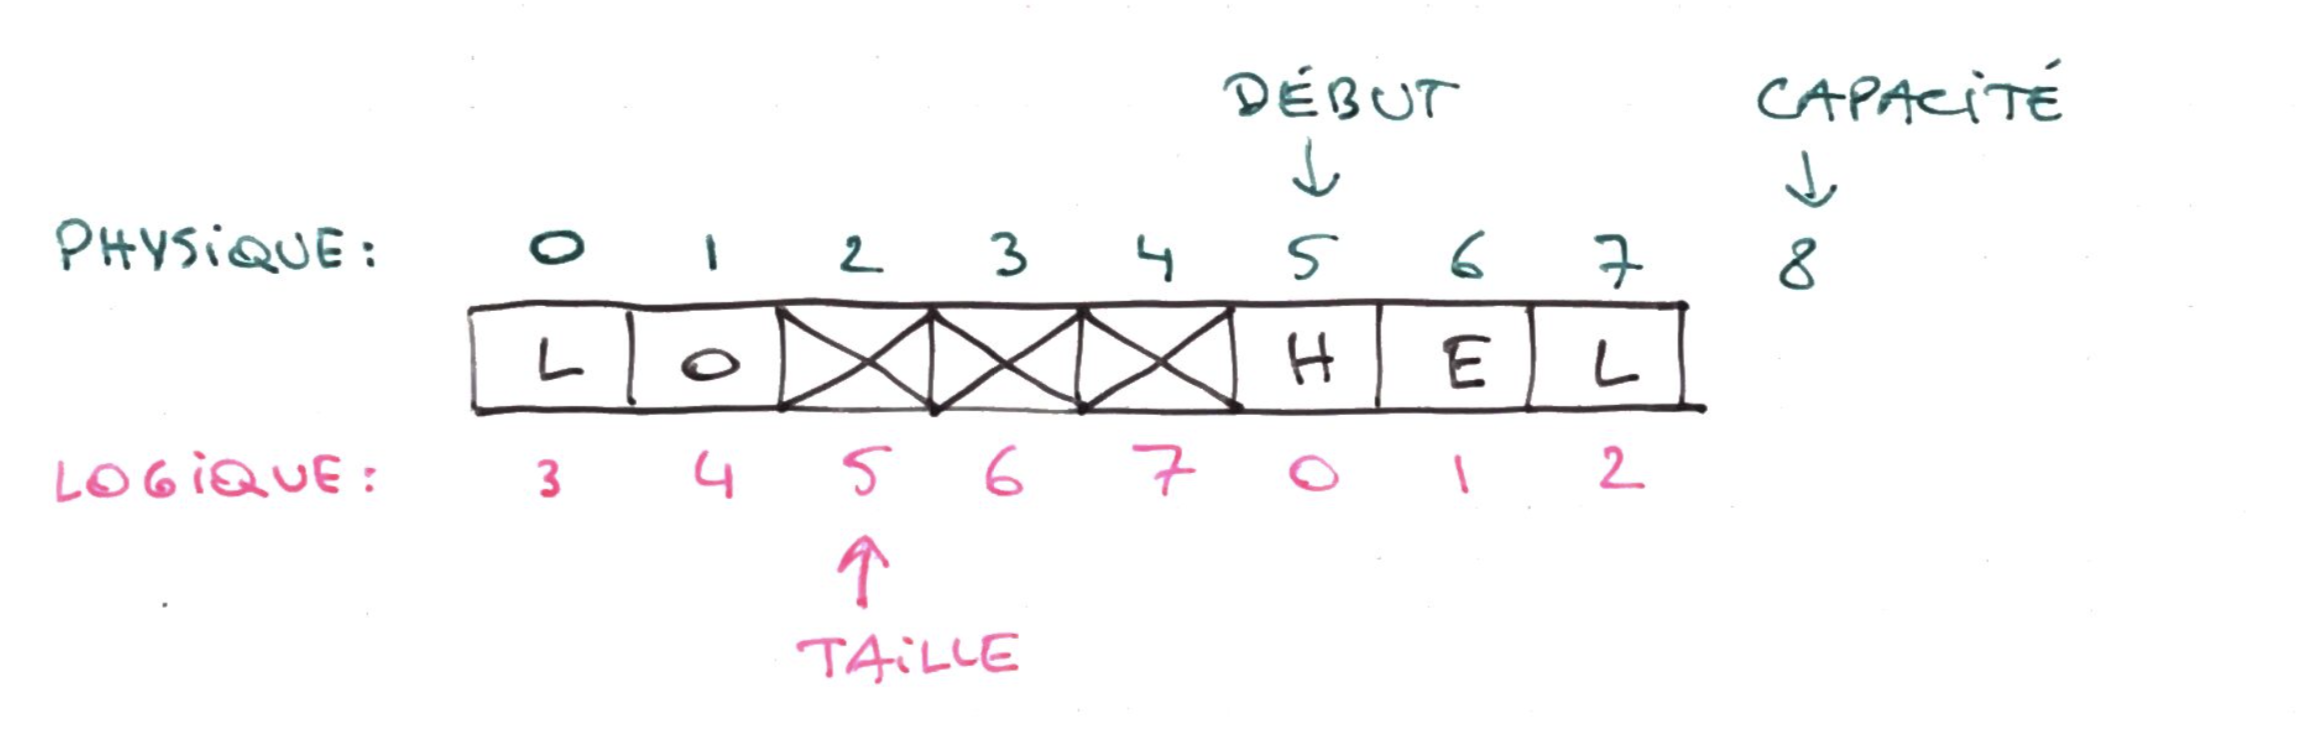 DÉBUT CAPACiTÉ
↓ ↓
PHYSiQUE: 0 1 2 3 4 5 6 7 8
L O H E L
LOGiQUE: 3 4 5 6 7 0 1 2
↑
TAiLLE